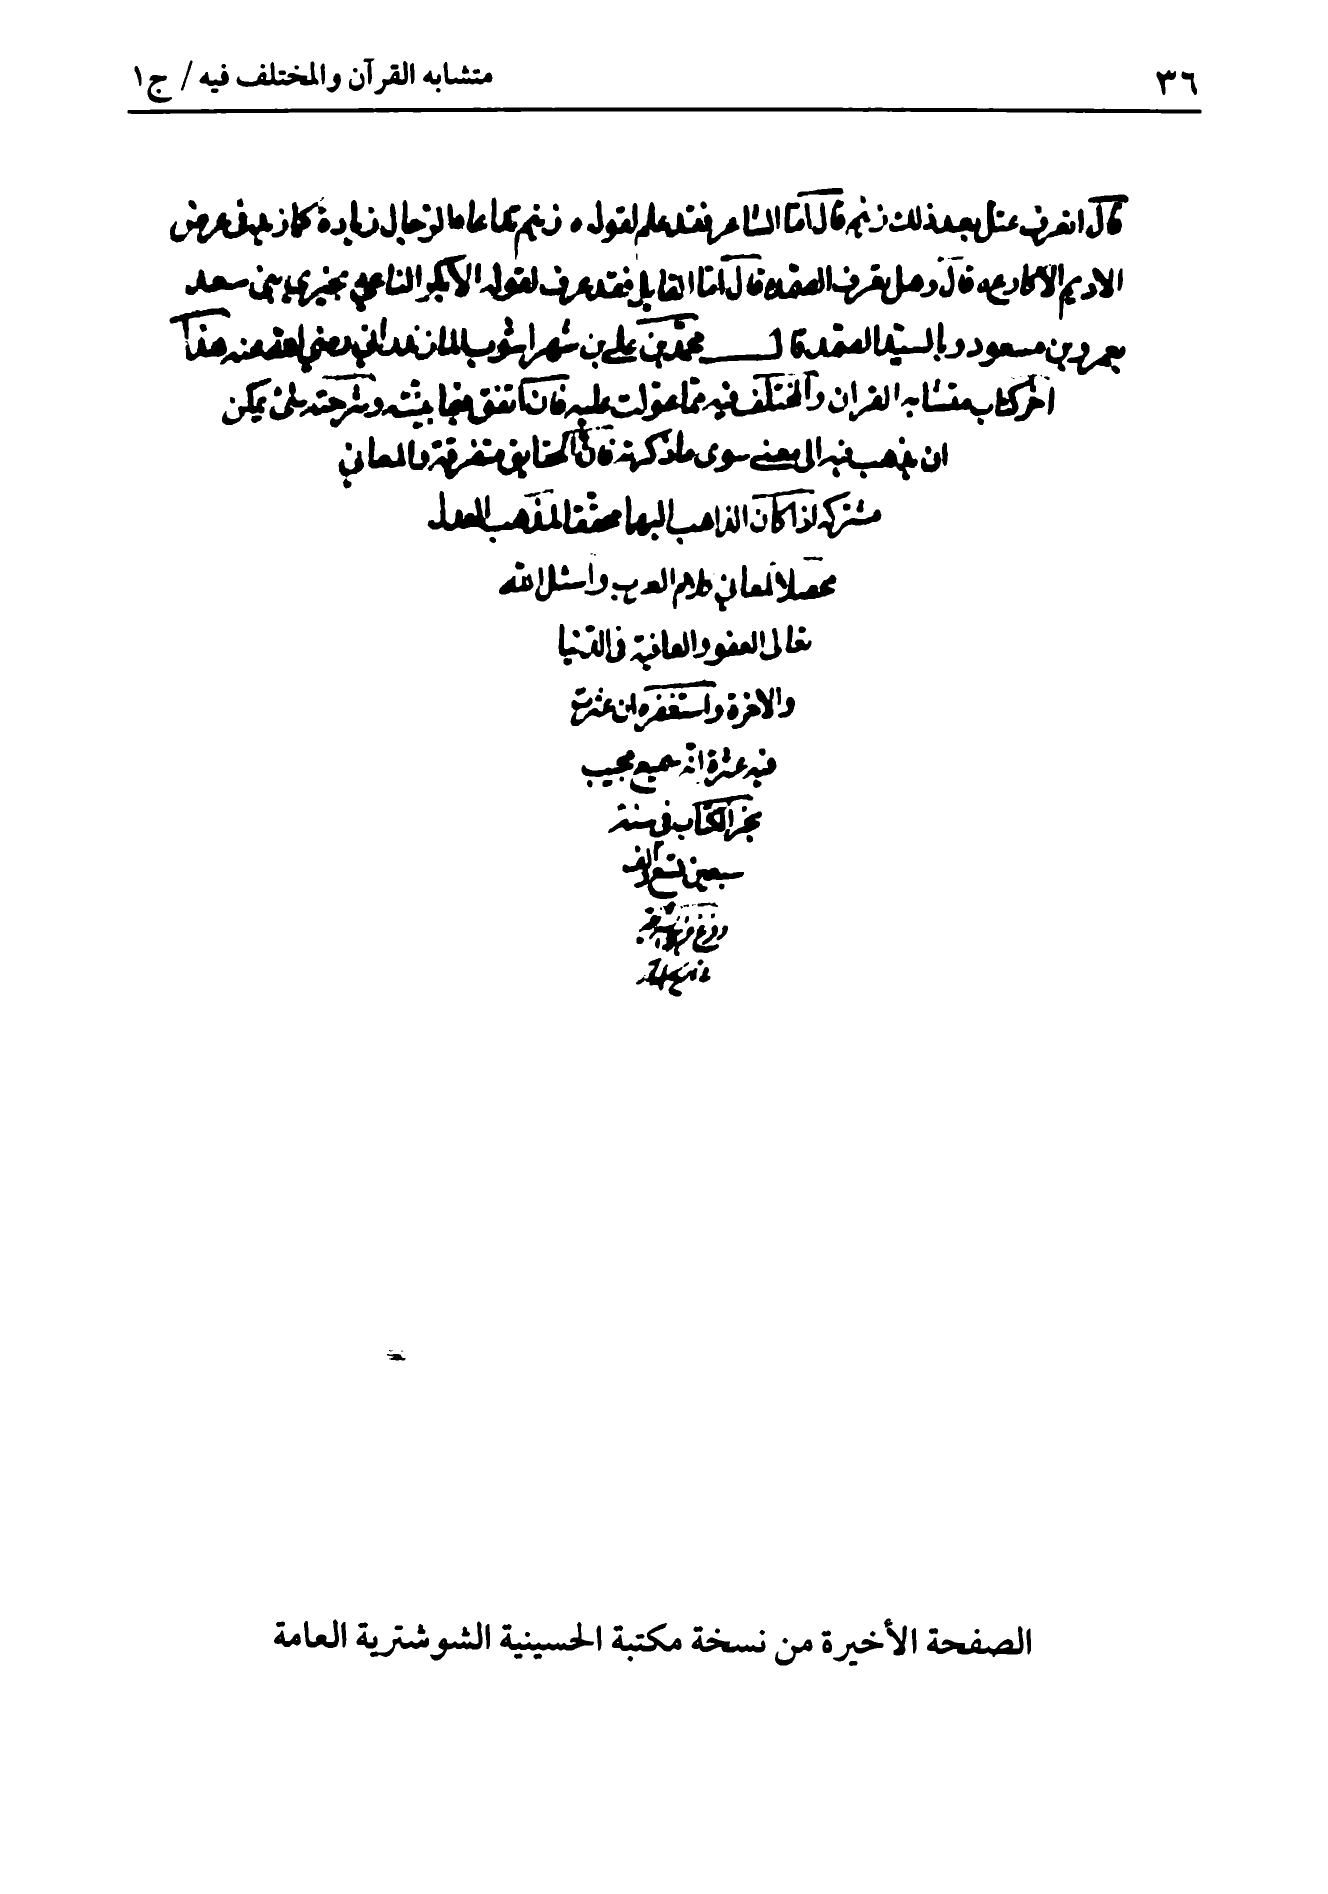 ٣٦ متشابه القرآن والمختلف فيه / ج١
قال اتعرف عتل بعد ذلك زنيم قال امّا الشاعر فقد علم لقوله ه زنيم تداعاه الرجال زيادة كما زيد فى عرض
الاديم الاكارع قال وهل يعرف الصمد قال امّا القايل فقد عرف لقوله الا بكر الناعي بخيري بني سعد
بعمرو بن مسعود وبالسيّد الصمد قال محمّد بن علي بن شهراشوب المازندراني رضي الله عنه هذا
آخر كتاب متشابه القران والمختلف فيه ممّا عوّلت عليه فان اتفق فيما بيّنته وشرحته شئ يمكن
ان يذهب فيه الى معنى سوى ما ذكرته فانّ الحقايق متفرقة والمعاني
مشتركه اذا كان الذاهب اليها محققا لمذهب العدل
محصّلا لمعاني كلام العرب واسئل الله
تعالى العفو والعافية فى الدّنيا
والاخرة واستغفره ان عثرت
فيه عثرة انّه سميع مجيب
نجز الكتاب فى سنة
سبعين تسع والف
الصفحة الأخيرة من نسخة مكتبة الحسينية الشوشترية العامة